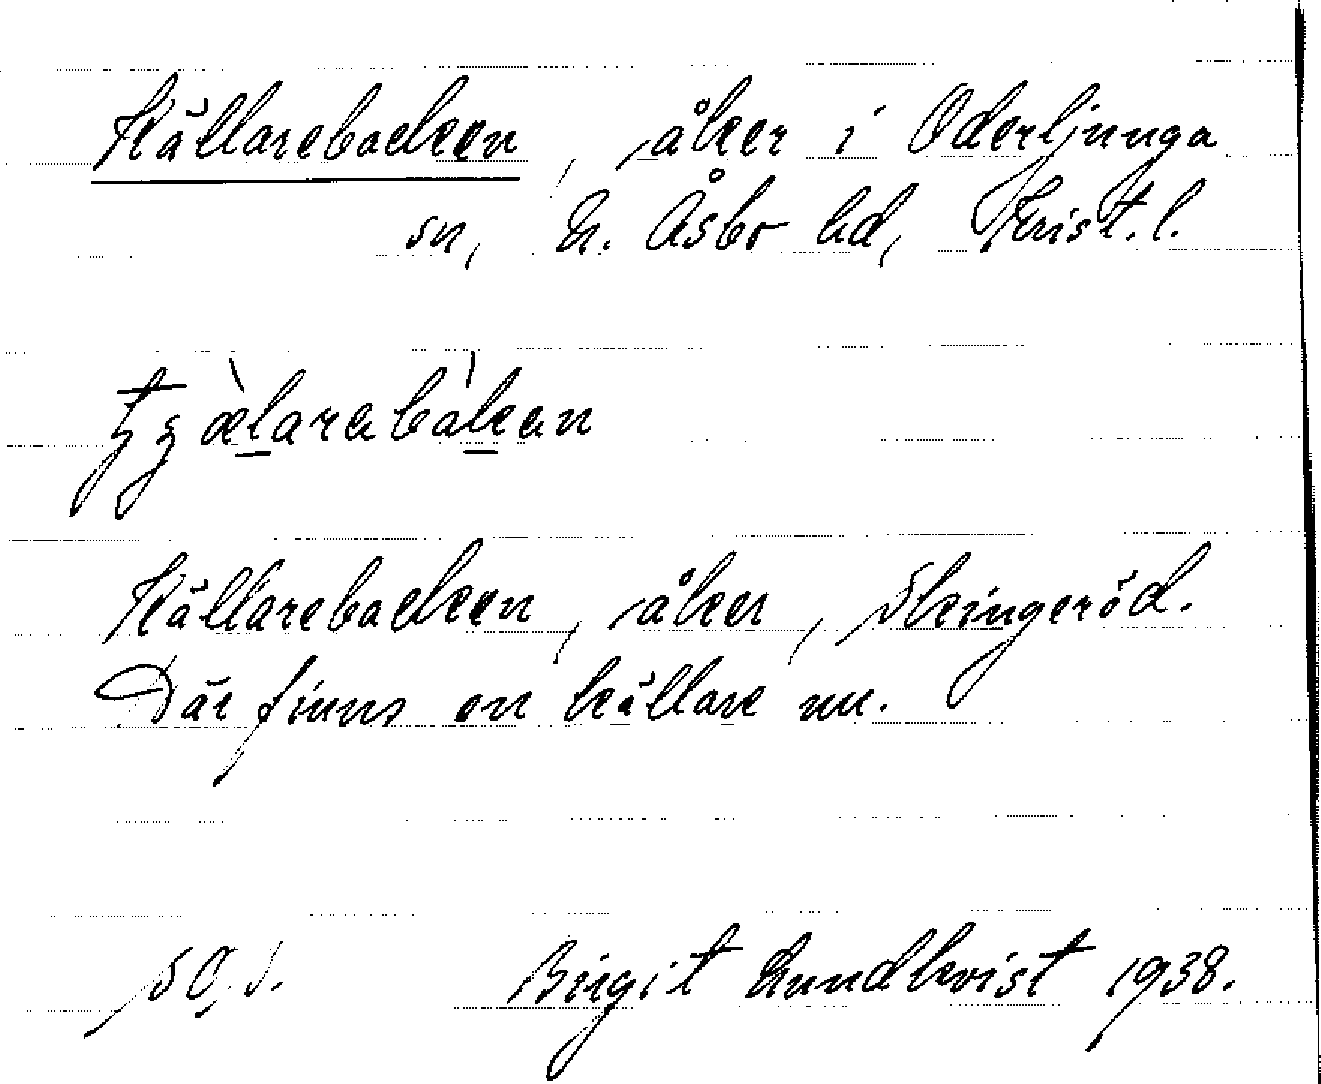 Källarebacken, åker i Oderljunga
sn, N. Åsbo hd, Krist. l.
Källarebacken, åker, Skingeröd.
Där finns en källare nu.
Birgit Lundkvist 1938.